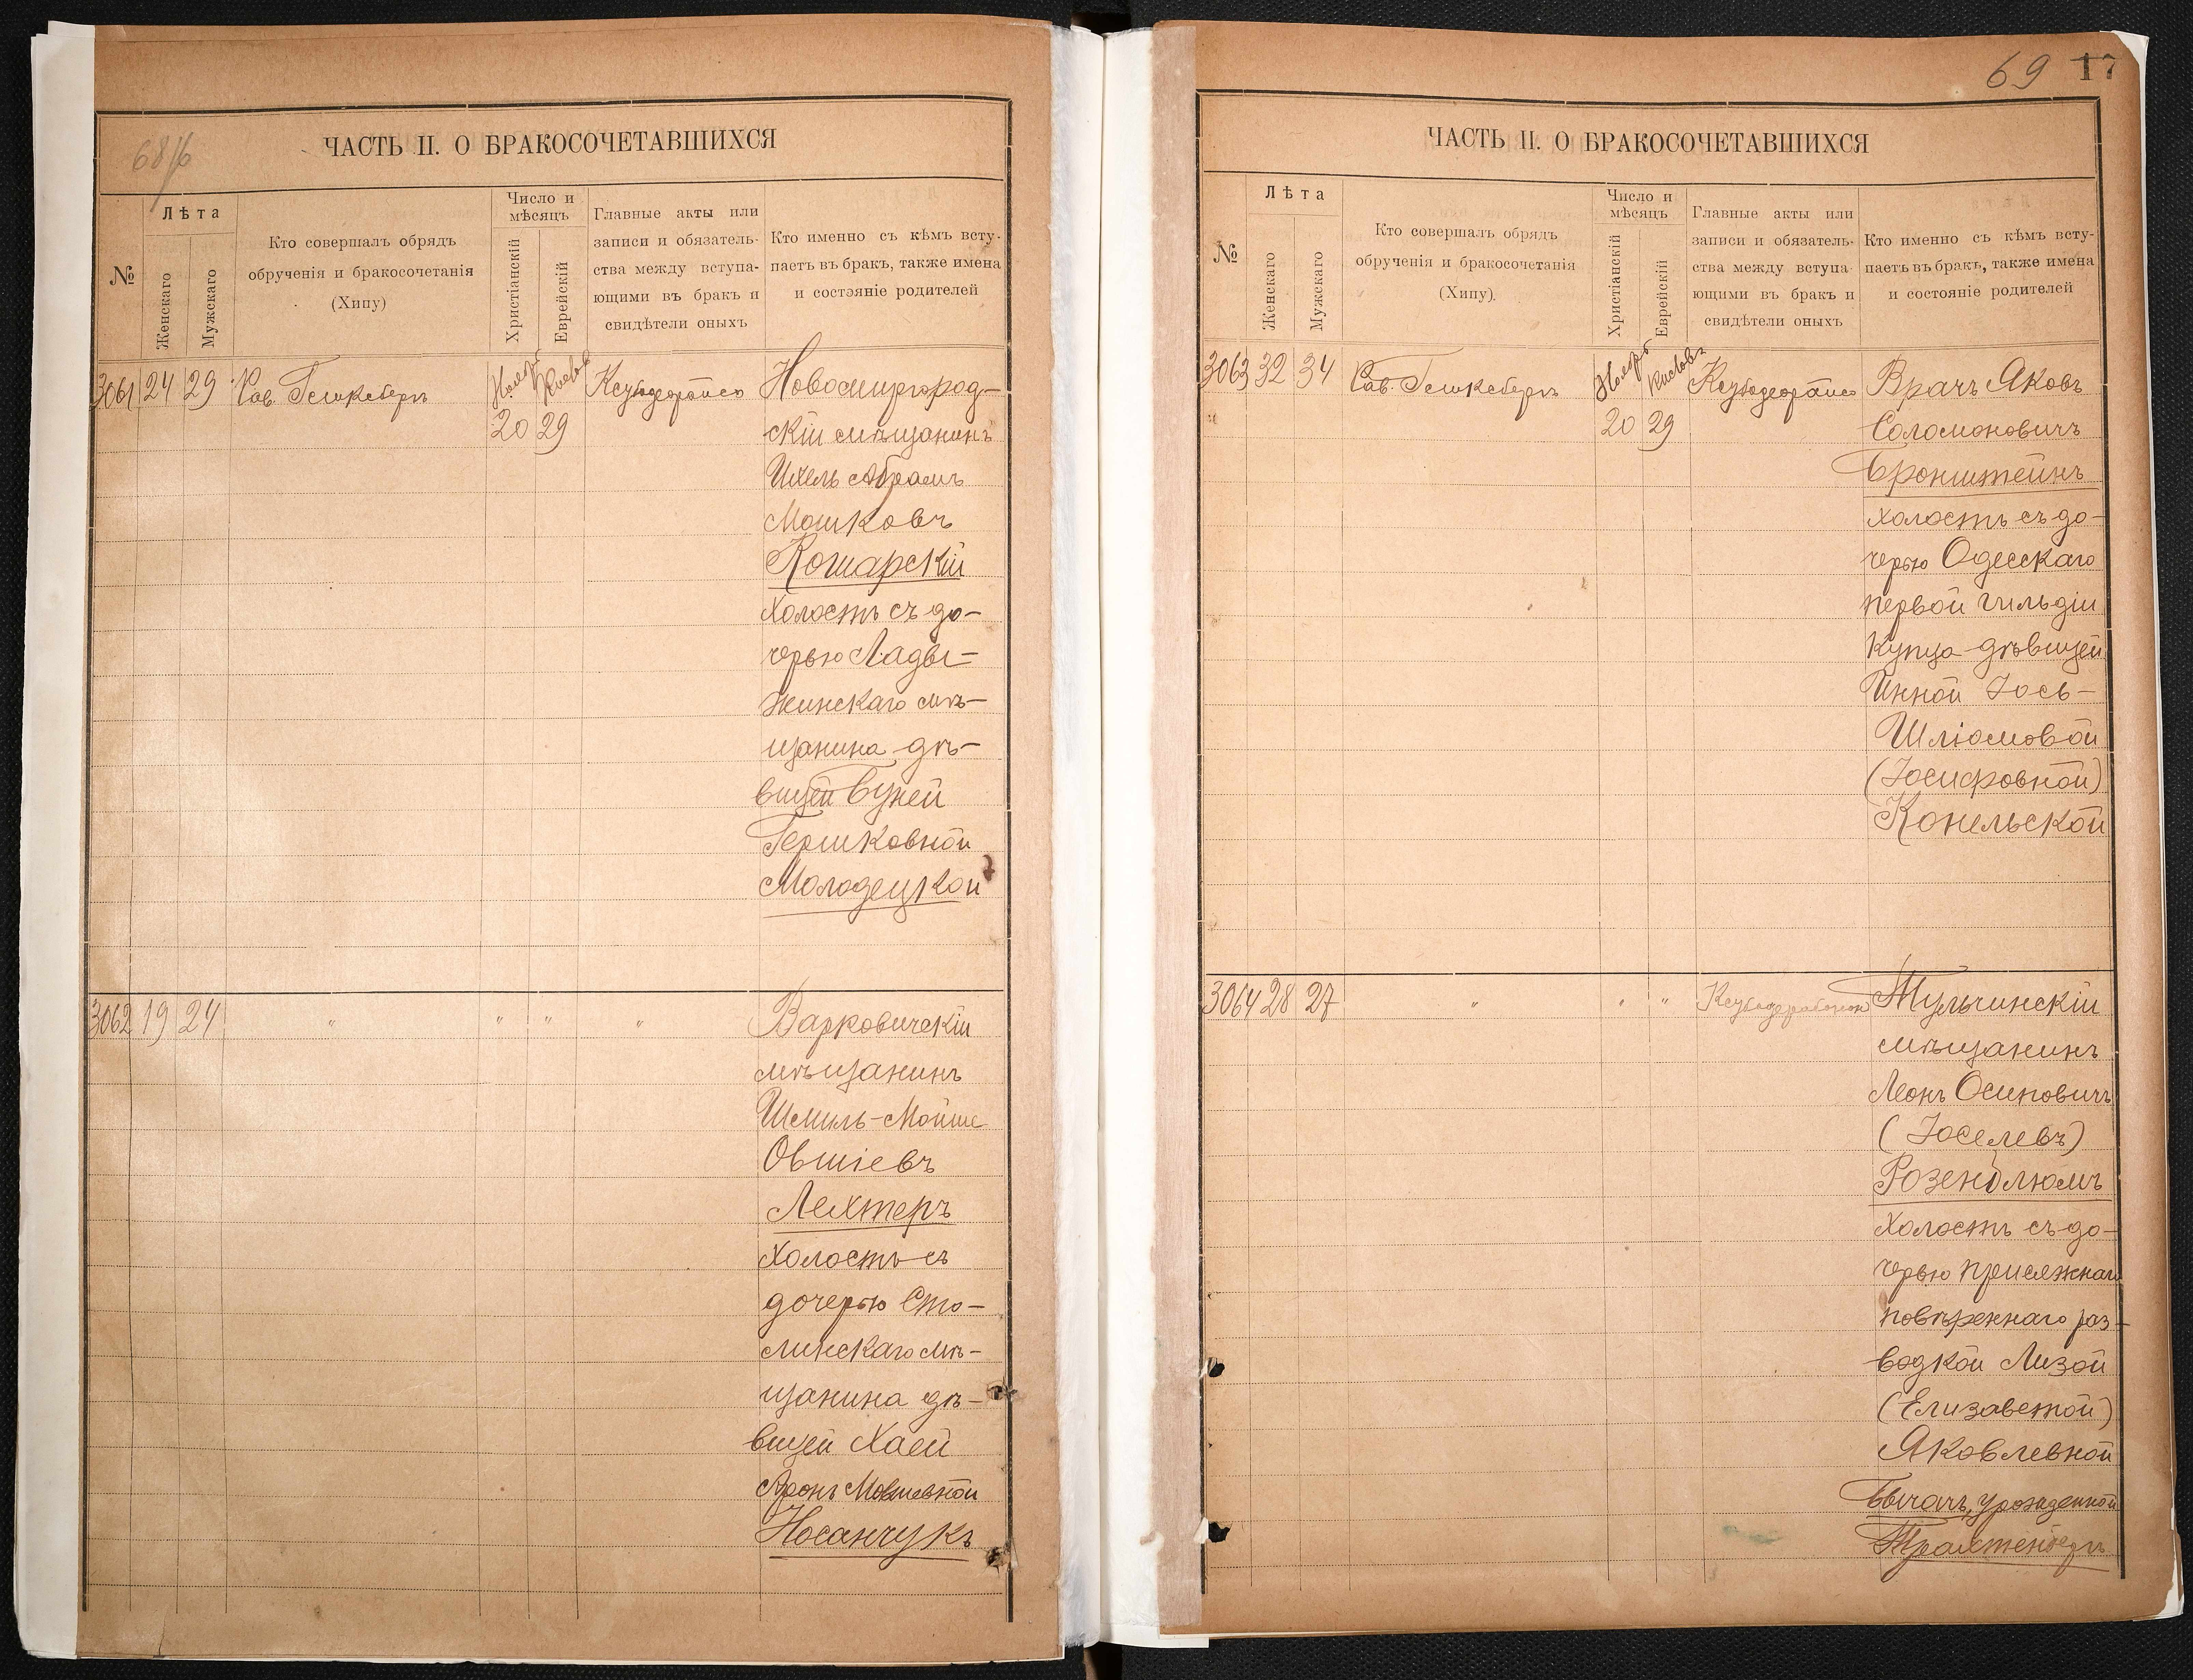 68/6
ЧАСТЬ II. О БРАКОСОЧЕТАВШИХСЯ
№
Лѣта
Женскаго
Мужскаго
Кто совершалъ обрядъ
обрученія и бракосочетанія
(Хипу)
Число и
мѣсяцъ
Христіанскій
Еврейскій
Главные акты или
записи и обязатель-
ства между вступа-
ющими въ бракъ и
свидѣтели оныхъ
Кто именно съ кѣмъ всту-
паетъ въ бракъ, также имена
и состояніе родителей
3061 24 29 Рав. Гешксбергъ Ноябр Кислевъ
20 29
Новомиргород-
скій мѣщанинъ
Ихель Абрамъ
Мошковъ
Кошарскій
холостъ съ до-
черью Лады-
жинскаго мѣ-
щанина дѣ-
вицей Бухей
Гершковной
Молодецкой
3062 19 24 " " " "
Варковичскій
мѣщанинъ
Шмиль-Мойше
Овшіевъ
Лехтеръ
холостъ съ
дочерью Сто-
линскаго мѣ-
щанина дѣ-
вицей Хаей
Аронъ Мовшевной
Носанчукъ
69 17
ЧАСТЬ II. О БРАКОСОЧЕТАВШИХСЯ
№
Лѣта
Женскаго
Мужскаго
Кто совершалъ обрядъ
обрученія и бракосочетанія
(Хипу).
Число и
мѣсяцъ
Христіанскій
Еврейскій
Главные акты или
записи и обязатель-
ства между вступа-
ющими въ бракъ и
свидѣтели оныхъ
Кто именно съ кѣмъ всту-
паетъ въ бракъ, также имена
и состояніе родителей
3063 32 34 Рав. Гешксбергъ Ноябр Кислевъ
20 29
Врачъ Яковъ
Соломоновичъ
Бронштейнъ
холостъ съ до-
черью Одесскаго
первой гильдіи
купца дѣвицей
Инной Іось-
Шліомовой
(Іосифовной)
Конельской
3064 28 27 " " "
Тульчинскій
мѣщанинъ
Леонъ Осиповичъ
(Іоселевъ)
Розенблюмъ
холостъ съ до-
черью присяжнаго
повѣреннаго раз-
водкой Лизой
(Елизаветой)
Яковлевной
Бычачъ, урожденной
Трахтенбергъ